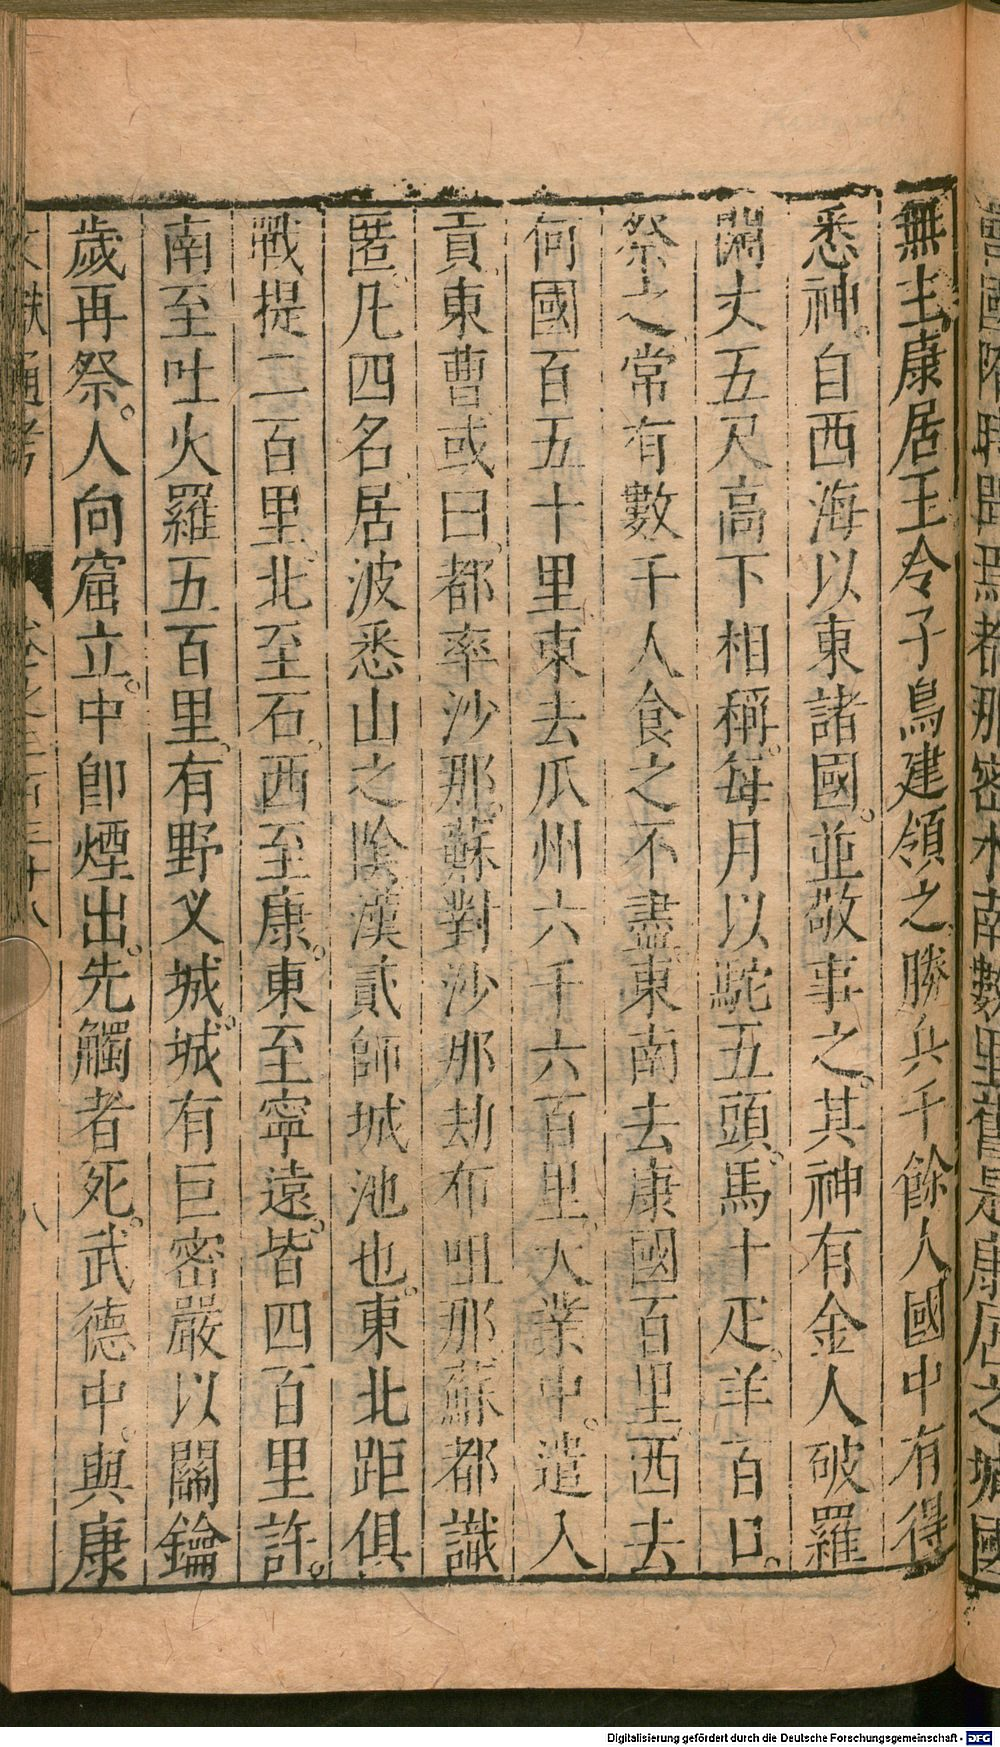 無主康居王令子烏建領之勝兵千餘人國中有得
悉神。自西海以東諸國。並敬事之。其神有金人破羅
闊丈五尺高下相稱。每月以駝五頭。馬十疋。羊百口。
祭之常有數千人食之不盡。東南去康國百里。西去
何國百五十里。東去瓜州六千六百里。大業中。遣入
貢東曹或曰。都率沙那。蘇對沙那劫布呾那蘇都識
匿。凡四名居波悉山之陰漢貳師城池也。東北距俱
戰提二百里。北至石。西至康。東至寧遠。皆四百里許。
南至吐火羅五百里。有野义城。城有巨密嚴以關鑰
歲再祭。人向窟立。中卽煙出。先觸者死。武德中。與康
文獻通考
卷之三百三十八
八
Digitalisierung gefördert durch die Deutsche Forschungsgemeinschaft - DFG